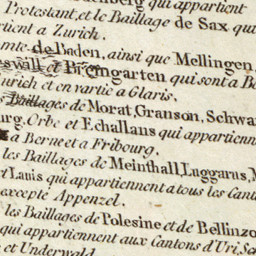 qui appartient
Protestant, et le Baillage de Sax qui
tient a Zurich.
mte de Baden, ainsi que Mellingen,
swill et Bremgarten qui sont a Be
urich et en partie a Glaris.
Baillages de Morat, Granson, Schwa
urg, Orbe et Echallans qui appartienn
a Berne et a Fribourg.
les Baillages de Meinthall, Luggarus, M
et Lauis qui appartiennent a tous les Cant
excepté Appenzel.
les Baillages de Polesine et de Bellinzo
qui appartiennent aux Cantons d'Uri, Sc
et Underwald